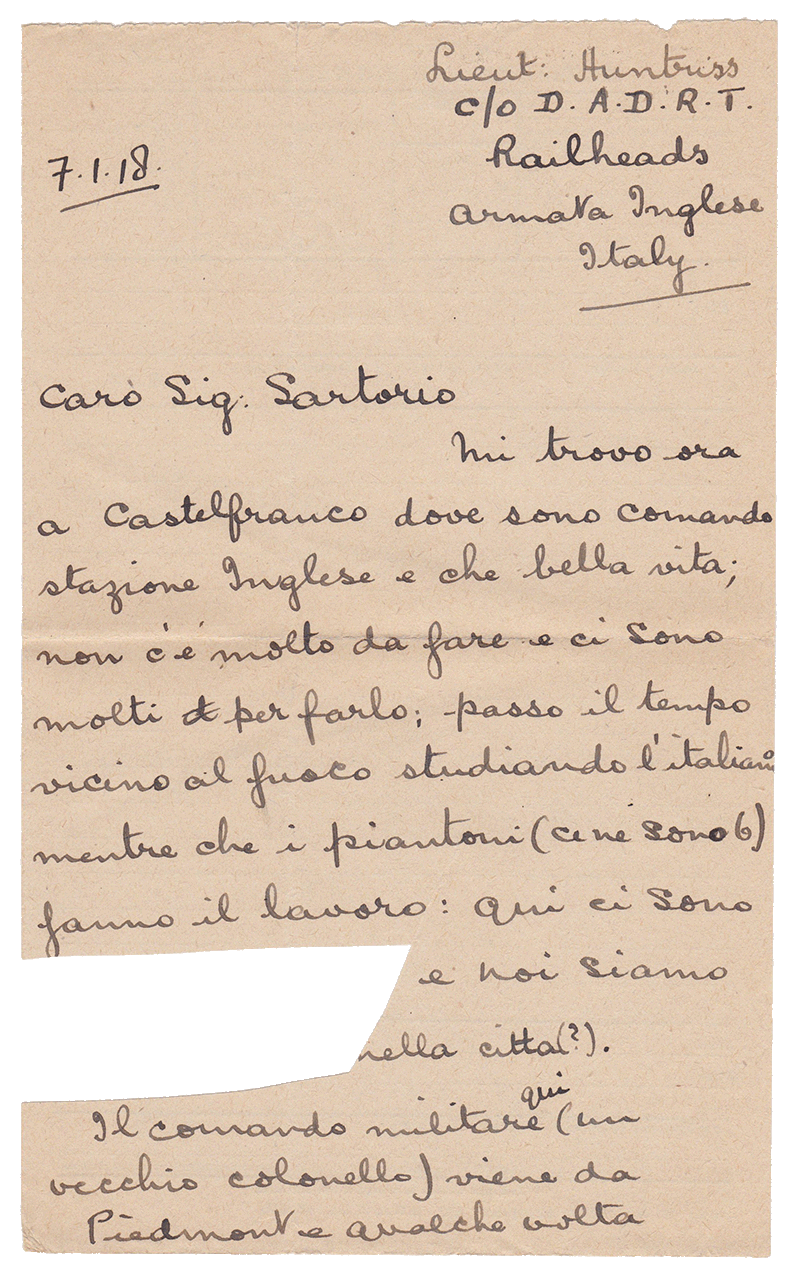 Lieut: Huntriss
c/o D.A.D.R.T.
Railheads
7.1.18.
Armata Inglese
Italy.
Caro Sig. Sartorio
Mi trovo ora
a Castelfranco dove sono comando
stazione Inglese e che bella vita;
non c'é molto da fare e ci sono
molti per farlo; passo il tempo
vicino al fuoco studiando l'italiano
mentre che i piantoni (ce ne sono 6)
fanno il lavoro: qui ci sono
e noi siamo
nella citta(?).
Il comando militare qui (un
vecchio colonello) viene da
Piedmont e qualche volta